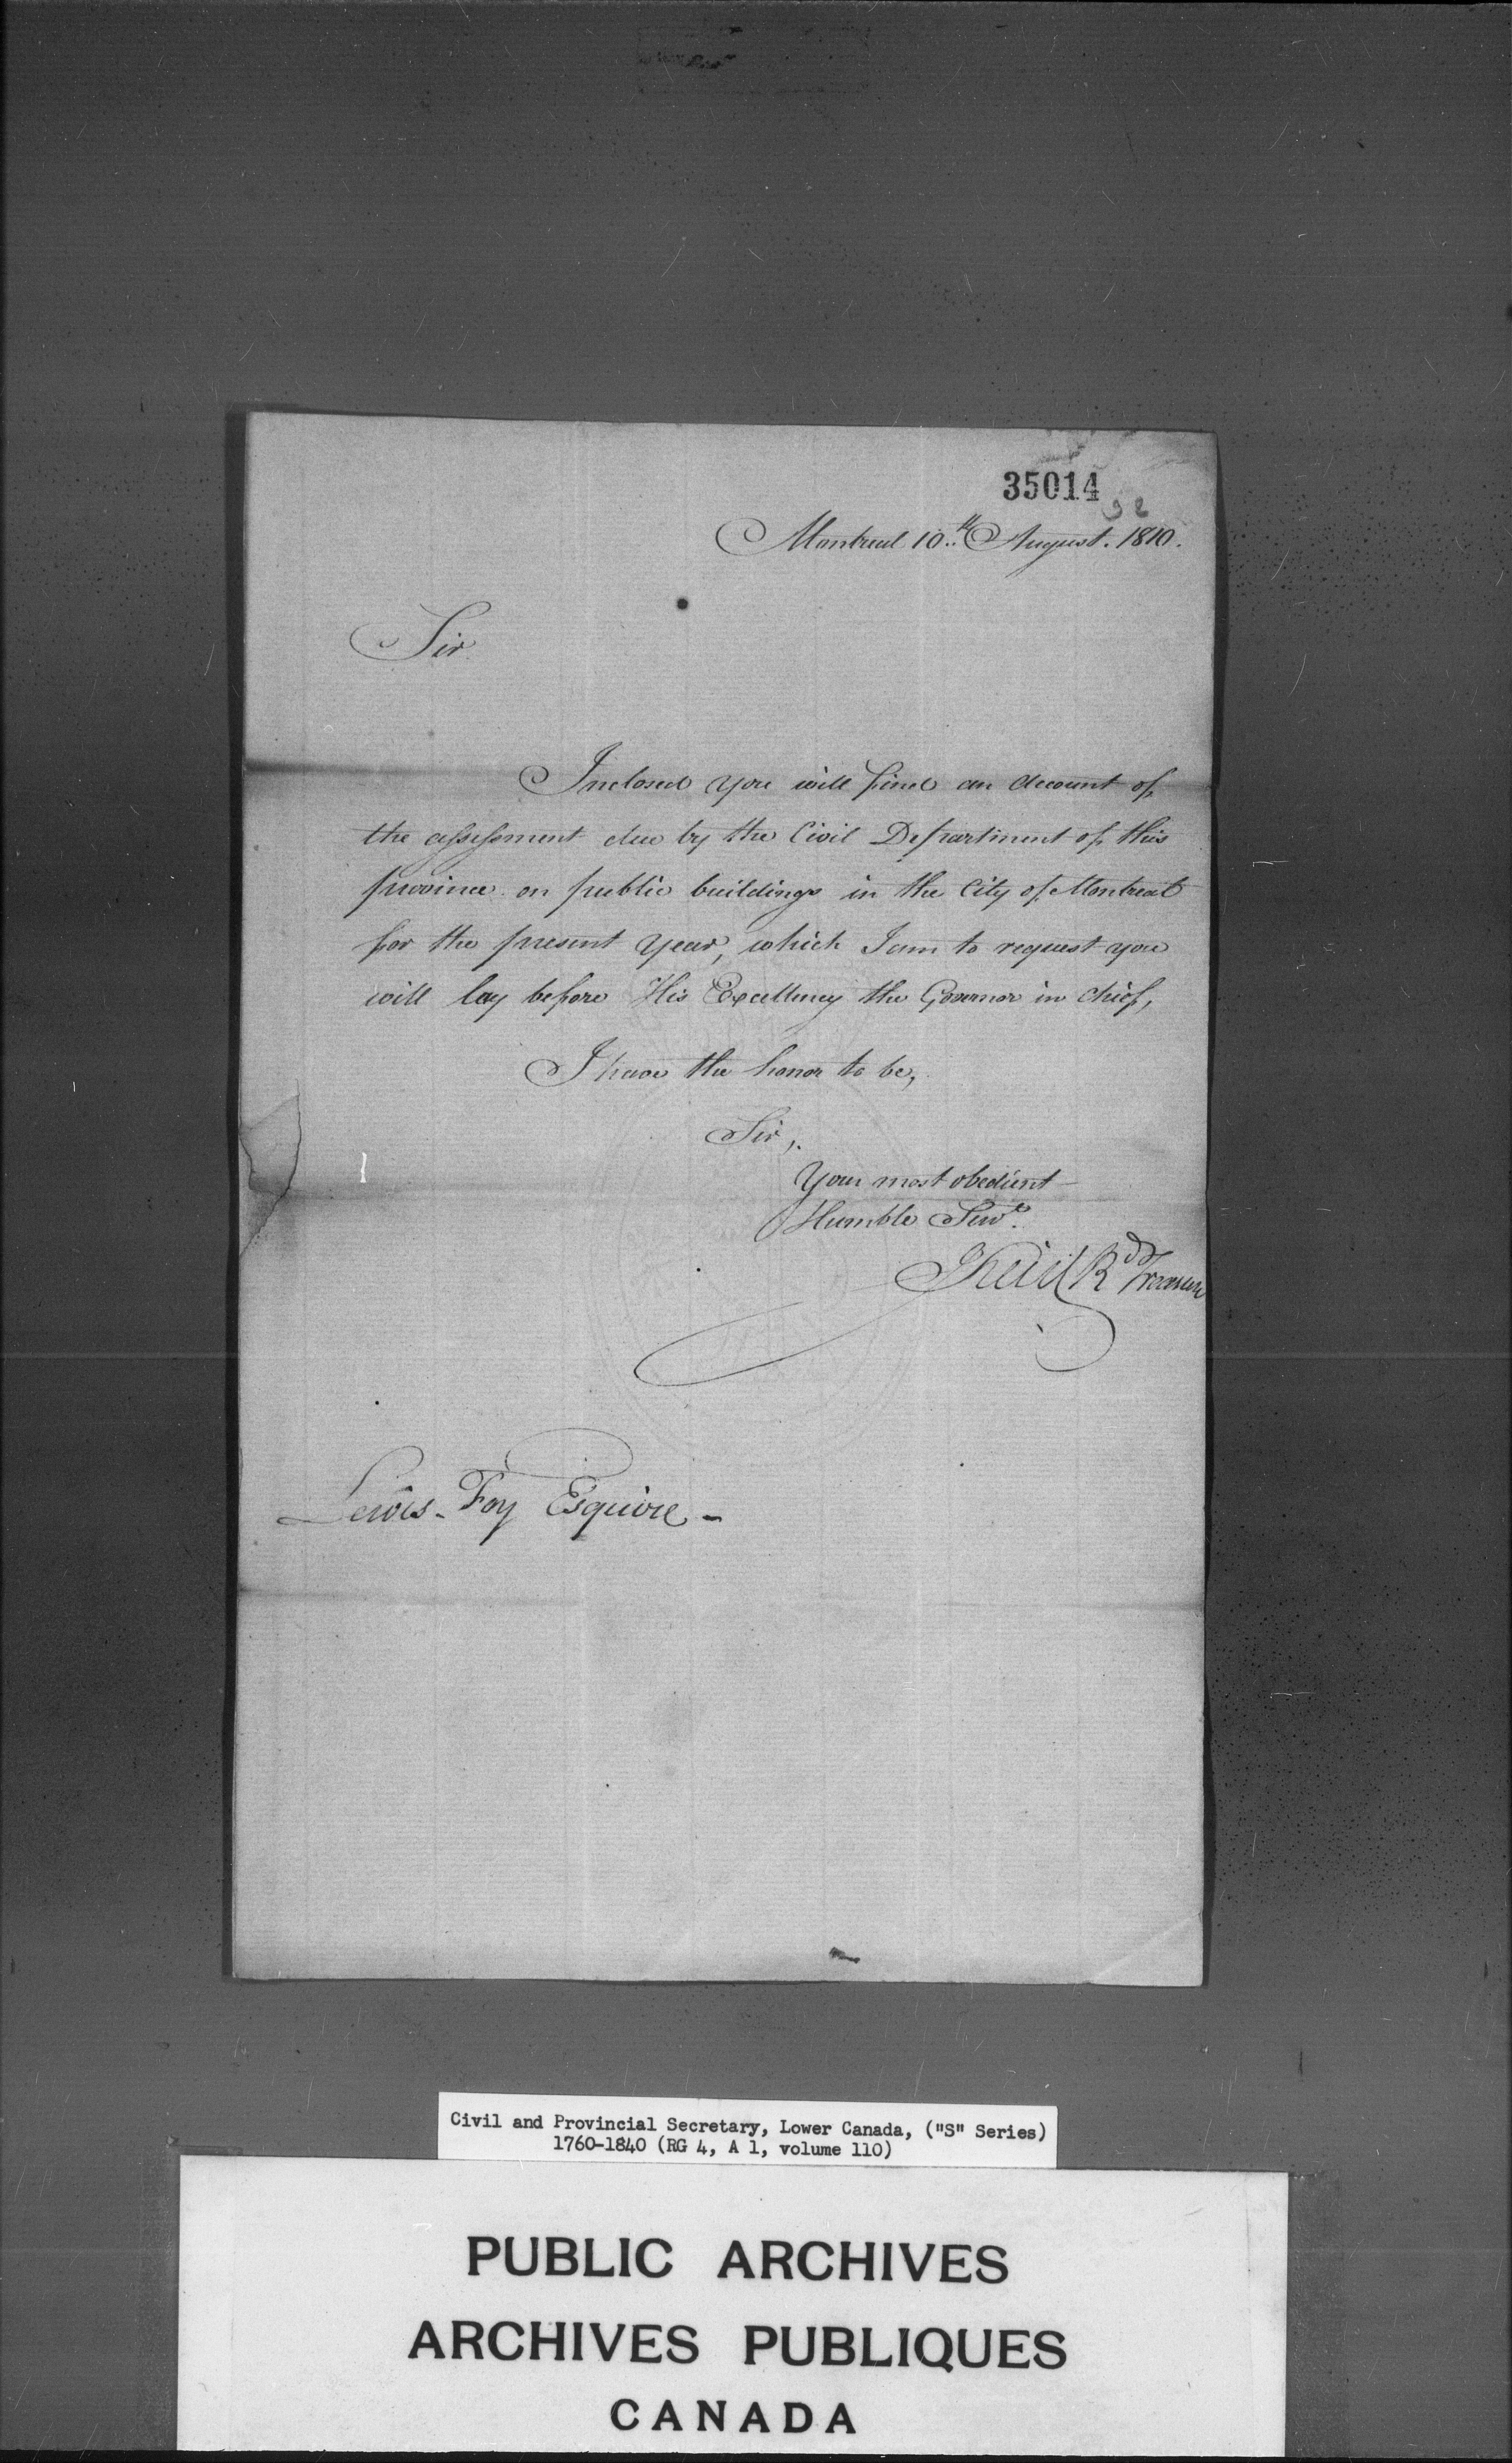 35014
Montreal 10th August. 1810.
Sir
Inclosed you will find an account of
the assessment due by the Civil Department of this
province on public buildings in the City of Montreal
for the present year, which I am to request you
will lay before His Excellency the Governor in chief,
I have the honor to be,
Sir,
Your most obedient
Humble Servt.
JReid Rd Treasurer
Lewis Foy Esquire -
Civil and Provincial Secretary, Lower Canada, ("S" Series)
1760-1840 (RG 4, A 1, volume 110)
PUBLIC ARCHIVES
ARCHIVES PUBLIQUES
CANADA